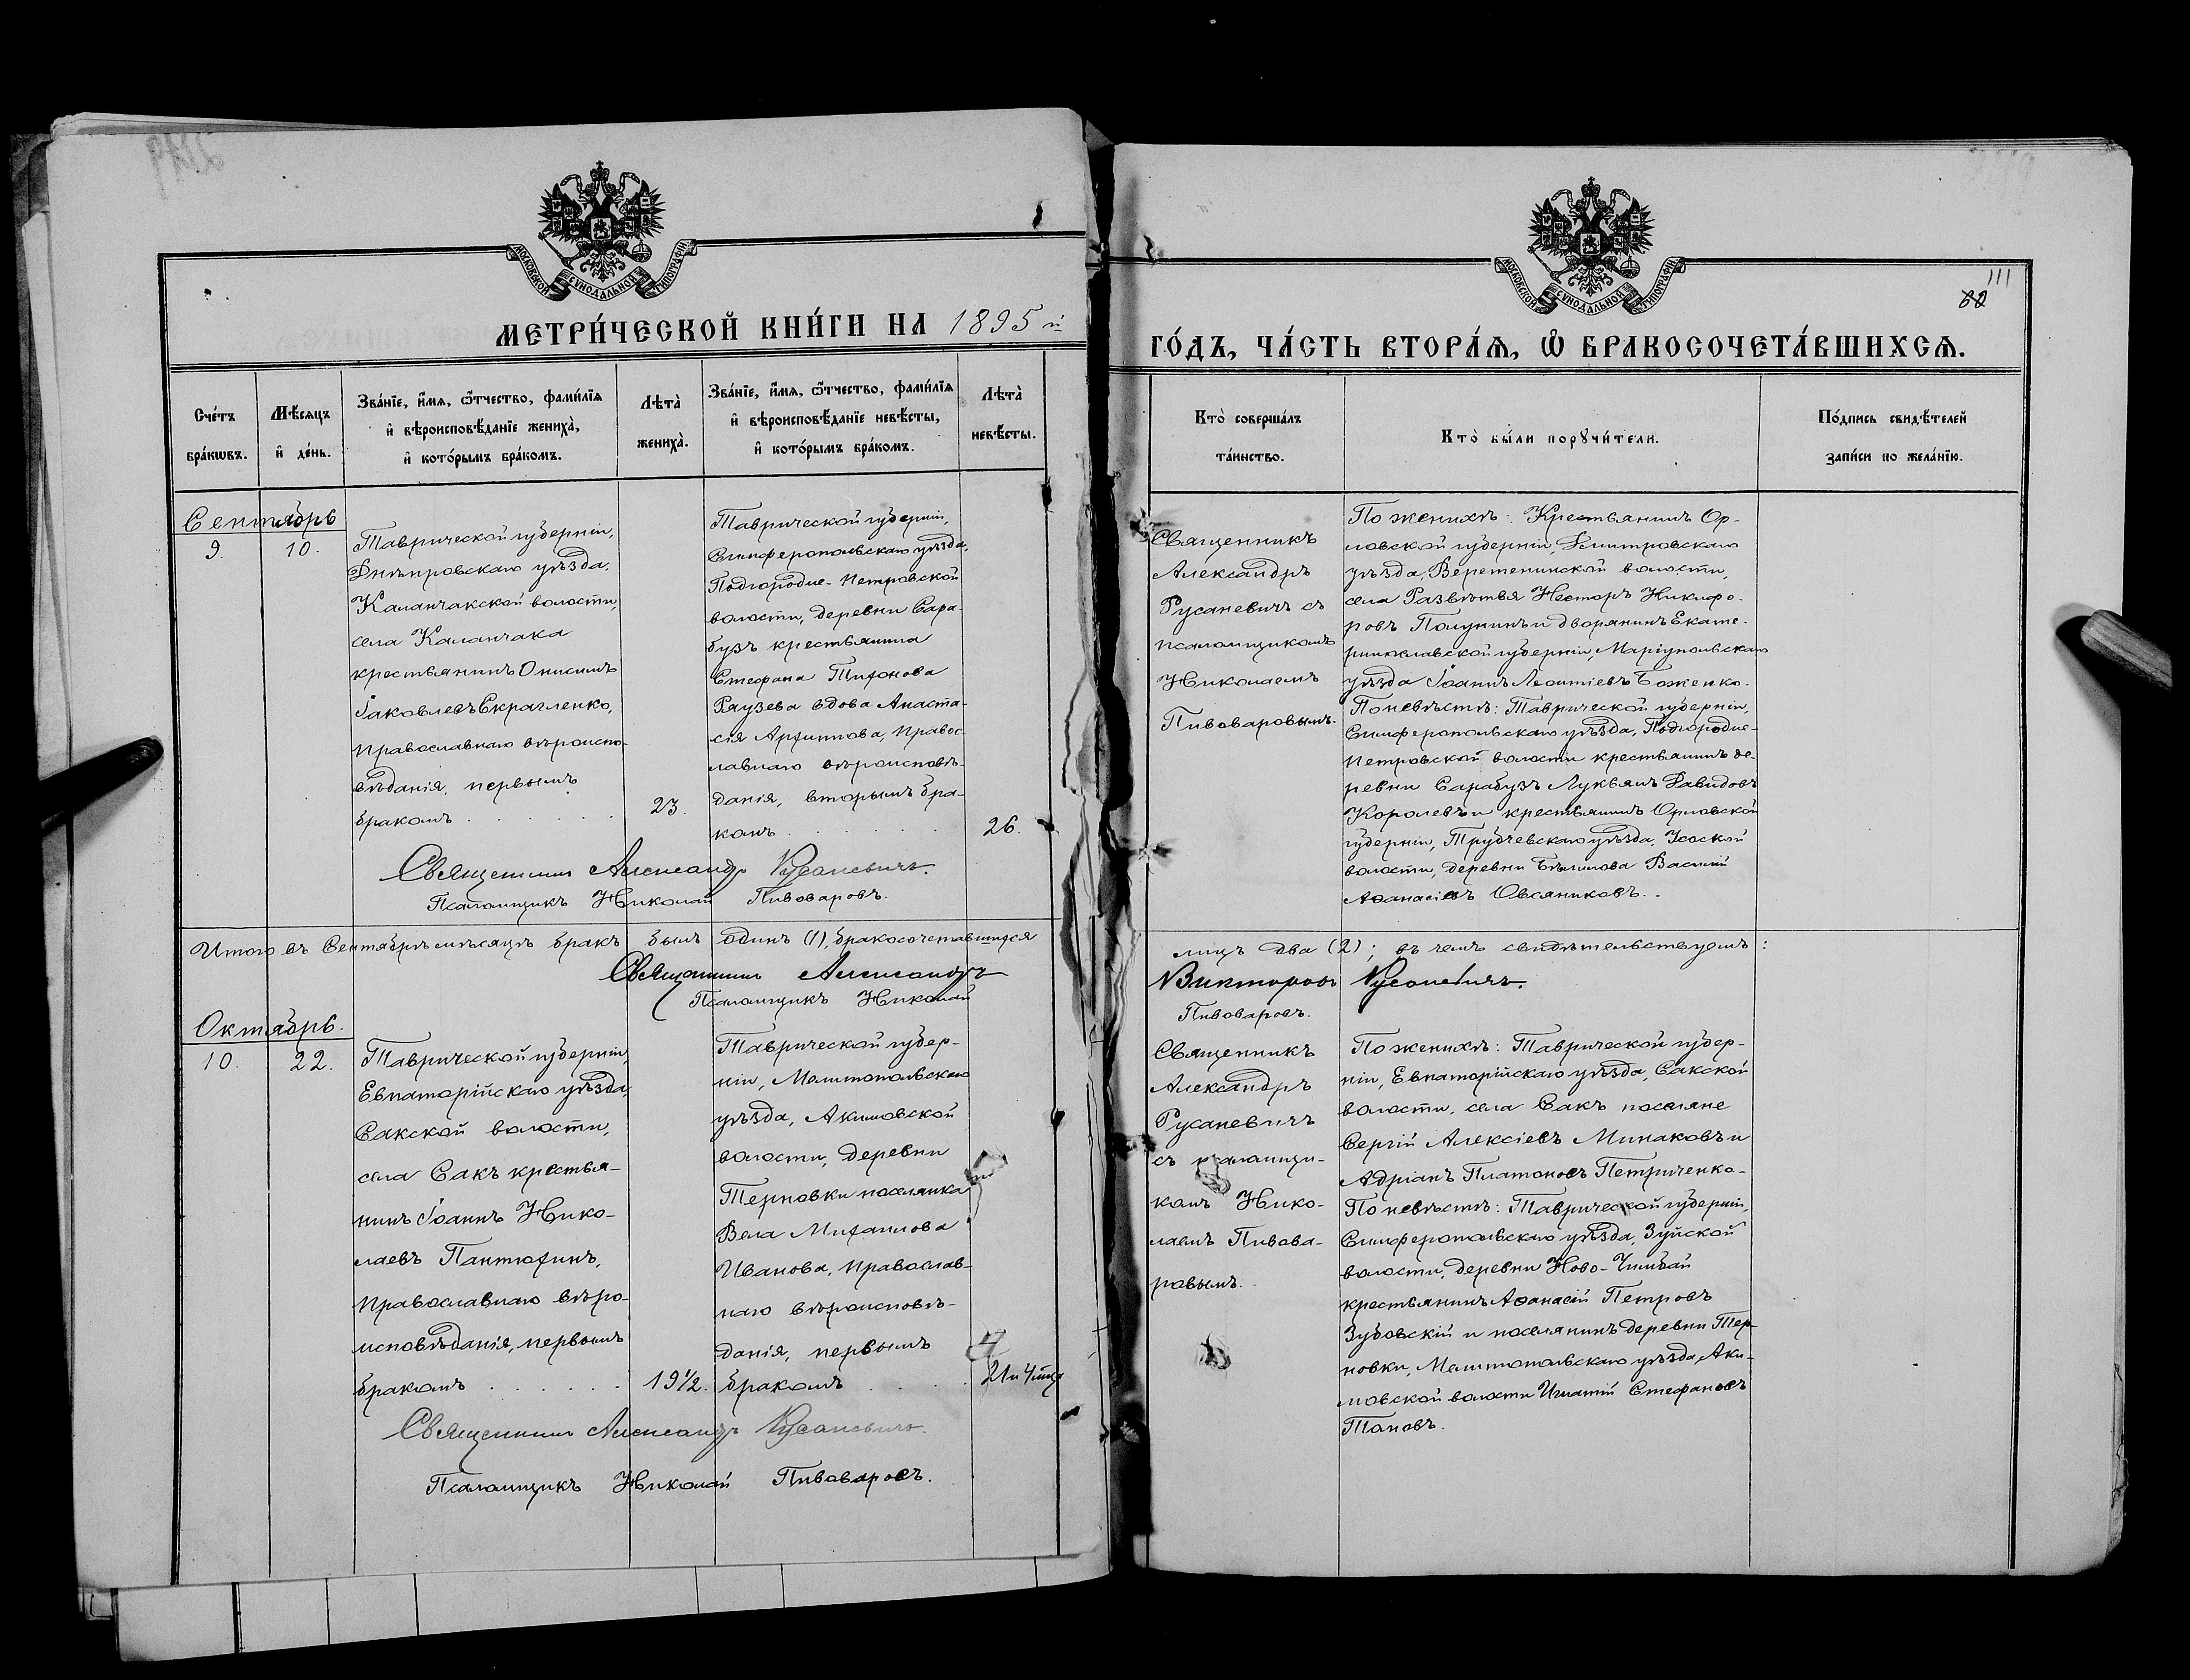 МОСКОВСКОЙ СѴНОДАЛЬНОЙ ТИПОГРАФІИ
МЕТРИ́ЧЕСКОЙ КНИ́ГИ НА 1895 й
Сче́тъ
бра́кѡвъ.
Мѣ́сяцъ
и҆ де́нь.
Зва́нїе, и҆́мя, ѻ҆́тчество, фами́лїя
и҆ вѣроисповѣ́данїе жениха̀,
и҆ кото́рымъ бра́комъ.
Лѣта̀
жениха̀.
Зва́нїе, и҆́мя, ѻ҆́тчество, фами́лїя
и҆ вѣроисповѣ́данїе невѣ́сты,
и҆ кото́рымъ бра́комъ.
Лѣта̀
невѣ́сты.
Сентябрь
9.
10.
Таврической губерніи,
Днѣпровскаго уѣзда,
Каланчакской волости,
села Каланчака
крестьянинъ Онисимъ
Іаковлевъ Скрагленко,
православнаго вѣроиспо-
вѣданія, первымъ
бракомъ
23.
Таврической губерніи,
Симферопольскаго уѣзда,
Подгородне-Петровской
волости, деревни Сара-
бузъ крестьянина
Стефана Тихонова
Ряузева вдова Анаста-
сія Архипова, правос-
лавнаго вѣроисповѣ-
данія, вторымъ бра-
комъ
26.
Священникъ Александръ Русаневичъ.
Псаломщикъ Николай Пивоваровъ.
Итого въ Сентябрѣ мѣсяцѣ бракъ былъ одинъ (1), бракосочетавшихся
Священникъ Александръ
Псаломщикъ Николай
Октябрь.
10.
22.
Таврической губерніи,
Евпаторійскаго уѣзда,
Сакской волости,
села Сакъ крестья-
нинъ Іоаннъ Нико-
лаевъ Пантюхинъ,
православнаго вѣро-
исповѣданія, первымъ
бракомъ
19½.
Таврической губер-
ніи, Мелитопольскаго
уѣзда, Акимовской
волости, деревни
Терновки поселянка
Вела Михаилова
Иванова, православ-
наго вѣроисповѣ-
данія, первымъ
бракомъ
21 и 4 мѣся
Священникъ Александръ Русаневичъ.
Псаломщикъ Николай Пивоваровъ.
МОСКОВСКОЙ СѴНОДАЛЬНОЙ ТИПОГРАФІИ
111
ГО́ДЪ, ЧА́СТЬ ВТОРА́Ѧ, Ѡ҆ БРАКОСОЧЕТА́ВШИХСѦ.
Кто̀ соверша́лъ
та́инство.
Кто̀ бы́ли порꙋчи́тели.
По́дпись свидѣ́телей
запи́си по жела́нїю.
Священникъ
Александръ
Русаневичъ съ
псаломщикомъ
Николаемъ
Пивоваровымъ.
По женихѣ: Крестьянинъ Ор-
ловской губерніи, Дмитровскаго
уѣзда, Веретенинской волости,
села Развѣтья Несторъ Никифо-
ровъ Полунинъ и дворянинъ Екате-
ринославской губерніи, Маріупольскаго
уѣзда Іоаннъ Леонтіевъ Боженко.
По невѣстѣ: Таврической губерніи,
Симферопольскаго уѣзда, Подгородне-
Петровской волости крестьянинъ де-
ревни Сарабузъ Лукьянъ Давидовъ
Королевъ и крестьянинъ Орловской
губерніи, Трубчевскаго уѣзда, Усоской
волости, деревни Бѣлилова Василій
Аѳанасіевъ Овсяниковъ.
лицъ два (2); въ чемъ свидѣтельствуемъ:
Викторовъ Русаневичъ.
Пивоваровъ.
Священникъ
Александръ
Русаневичъ
съ псаломщи-
комъ Нико-
лаемъ Пивова-
ровымъ.
По женихѣ: Таврической губер-
ніи, Евпаторійскаго уѣзда, Сакской
волости, села Сакъ поселяне
Сергій Алексіевъ Минаковъ и
Адріанъ Платоновъ Петриченко.
По невѣстѣ: Таврической губерніи,
Симферопольскаго уѣзда, Зуйской
волости, деревни Ново-Чимбай
крестьянинъ Аѳанасій Петровъ
Зубовскій и поселянинъ деревни Тер-
новки, Мелитопольскаго уѣзда, Аки-
мовской волости Игнатій Стефановъ
Тановъ.